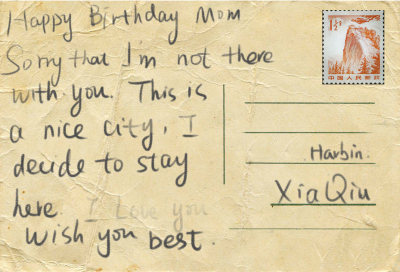 Happy Birthday Mom
Sorry that I'm not there
with you. This is
a nice city, I
decide to stay
here. I Love you
wish you best.
中国人民邮政
Harbin.
XiaQiu